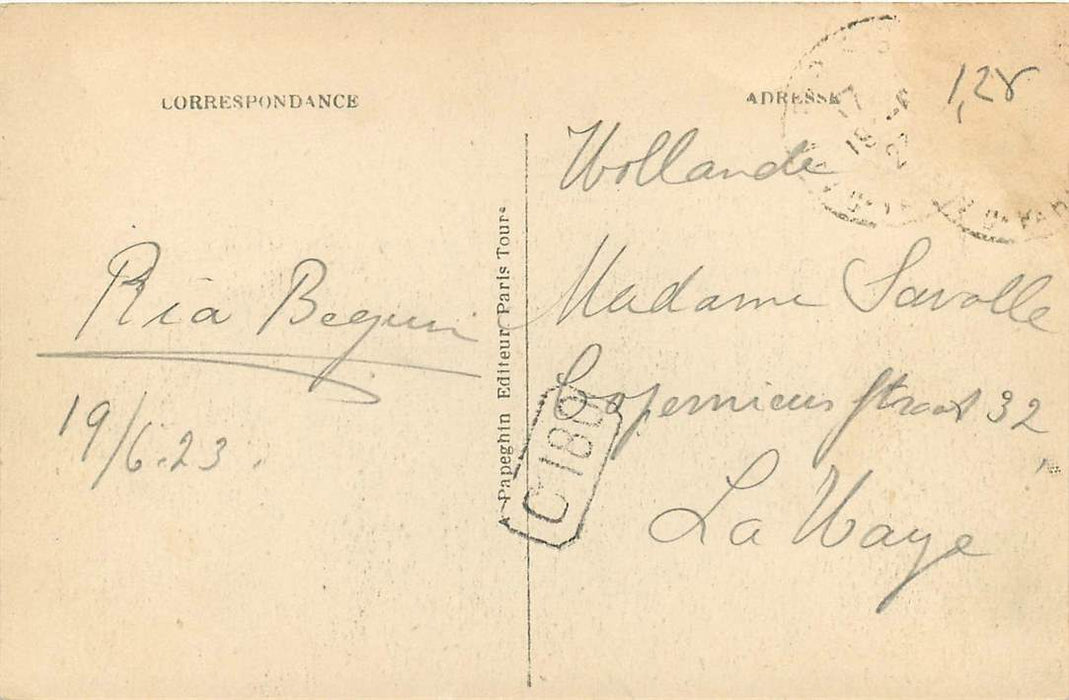 CORRESPONDANCE
Ria Beguin
19/6.23.
A Papeghin Editeur Paris Tours
ADRESSE
1,28
Hollande
Madame Savolle
Copernicus straat 32
La Haye
C180